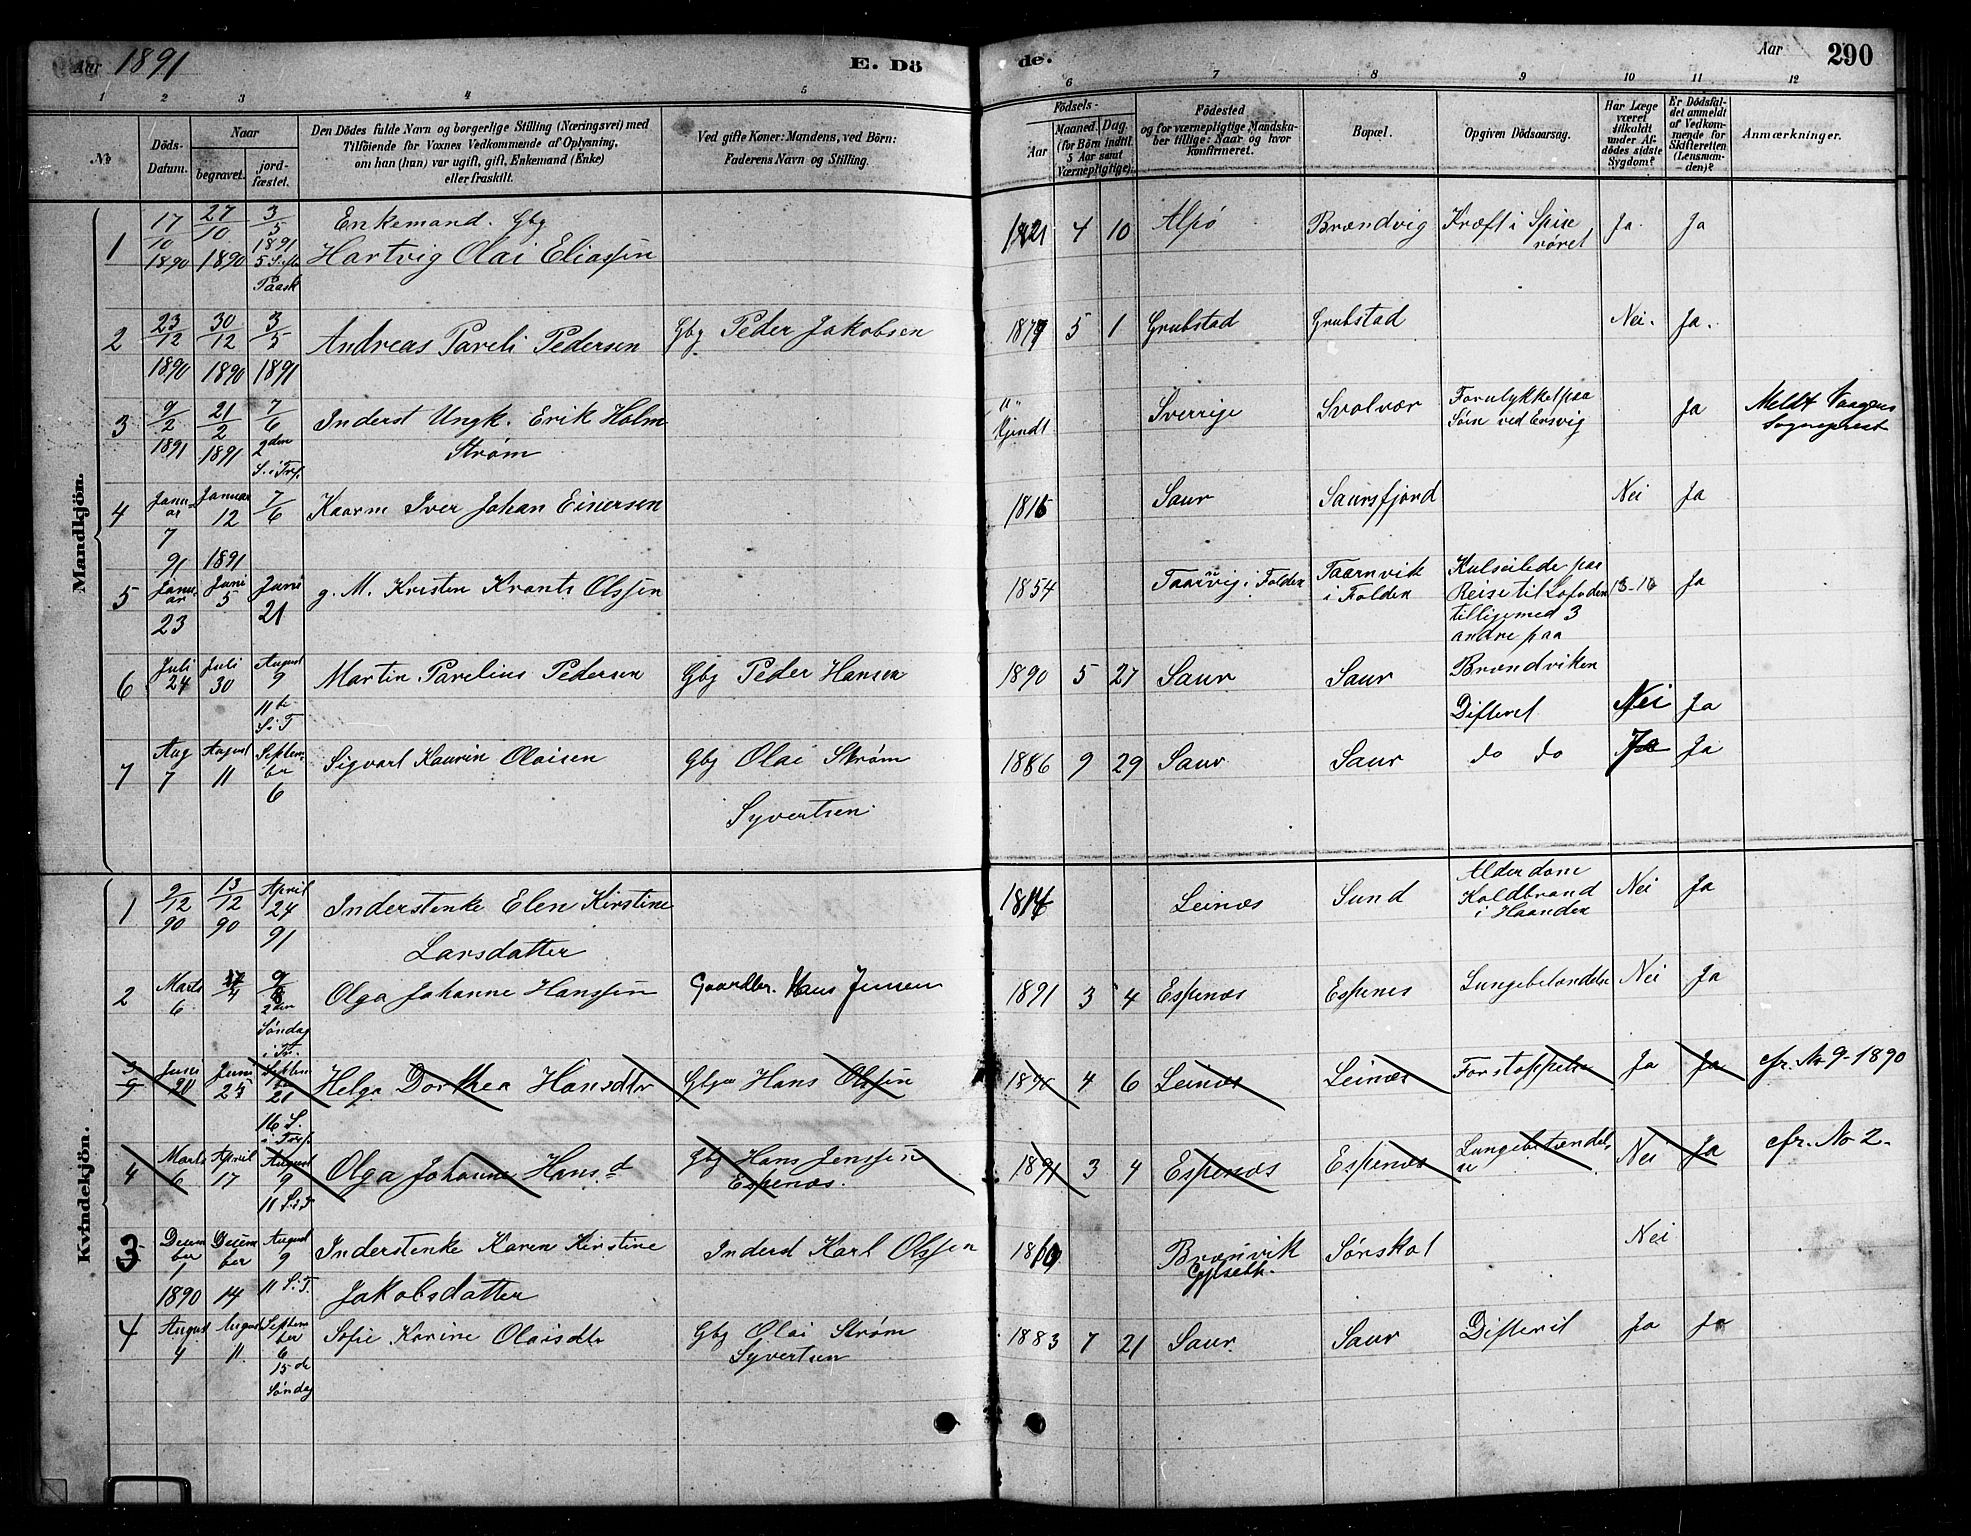 Aar 1891
E. Dö
de.
Aar
290
1 2 3 4 5 6 7 8 9 10 11 12
No
Döds-Datum.
Naar
begravet.
jord-fæstet.
Den Dödes fulde Navn og borgerlige Stilling (Næringsvei) med
Tilföiende for Voxnes Vedkommende af Oplysning,
om han (hun) var ugift, gift, Enkemand (Enke)
eller fraskilt.
Ved gifte Koner: Mandens, ved Börn:
Faderens Navn og Stilling.
Födsels-
Aar
Maaned. Dag.
(for Börn indtil
5 Aar samt
Værnepligtige).
Födested
og for værnepligtige Mandska-
ber tillige: Naar og hvor
konfirmeret.
Bopæl.
Opgiven Dödsaarsag.
Har Læge
været
tilkaldt
under Af-
dödes sidste
Sygdom?
Er Dödsfal-
det anmeldt
af Vedkom-
mende for
Skifteretten
(Lensman-
den)?
Anmærkninger.
Mandkjön.
1 17/10 1890 27/10 1890 3/5 1891 5 S. efter Paask
Enkemand. Gbg
Hartvig Olai Eliassen
1821 4 10 Alpö Brændvig Kræft i Spise
røret Ja. Ja
2 23/12 1890 30/12 1890 3/5 1891
Andreas Pareli Pedersen Gbg Peder Jakobsen
1877 5 1 Grubstad Grubstad Nei. Ja.
3 9/2 1891 21/2 1891 7/6 2den S. i Tref.
Inderst Ungk. Erik Holm
Strøm
Kjendt Sverrige Svolvær Forulykket paa
Søen ved Ersvig Ja Meldt Vaagens
Sogneprest
4 Januar 7 91 Januar 12 1891 7/6
Kaarm Iver Johan Einersen
1815 Saur Saursfjord Nei Ja
5 Januar 23 Juni 5 Juni 21
g. M. Kristen Krants Olssen
1854 Taarvig i Folden Taarnvik
i Folden Kulseilede paa
Reise til Lofoden
tilligemed 3
andre paa
Brændviken
Ja
6 Juli 24 Juli 30 August 9 11te S. i T
Martin Parelius Pedersen Gbg Peder Hansen
1890 5 27 Saur Saur Difterit Nei Ja
7 Aug 7 August 11 September 6
Sigvart Kaurin Olaisen Gbg Olai Strøm
Syvertsen
1886 9 29 Saur Saur do do Ja Ja
Kvindekjön.
1 9/12 90 13/12 90 April 24 91
Inderstenke Elen Kirstine
Larsdatter
1814 Leinæs Sund Alderdom
Koldbrand
i Haanden Nei Ja
2 Marts 6 17/4 9/8 2den Søndag i Tr.
Olga Johanne Hanssen Gaardbr. Hans Jensen
1891 3 4 Espenæs Espenes Lungebetændelse Nei Ja
3 Juni 20 Juni 25 Septemb 21 16 S. i Tref.
Helga Dorthea Hansdtr Gbgr Hans Olssen
1891 4 6 Leinæs Leinæs Forstoppelse Ja Ja cfr. No 9-1890
4 Marts 6 April 17 August 9 11 S. i T
Olga Johanne Hansd Gbg Hans Jenssen
Espenæs.
1891 3 4 Espenæs Espenæs Lungebetændel-
se Nei Ja cfr. No 2-
3 December 1 1890 December 14 August 9 11 S. i T.
Inderstenke Karen Kirstine Inderst Karl Olssen
Jakobsdatter
Brænvik
Gjelseth. Sørskot Nei
4 August 4 August 11. September 6 15de Søndag
Sofie Karine Olaisdtr Gbg Olai Strøm
Syvertsen
1883 7 21 Saur Saur Difterit Ja Ja